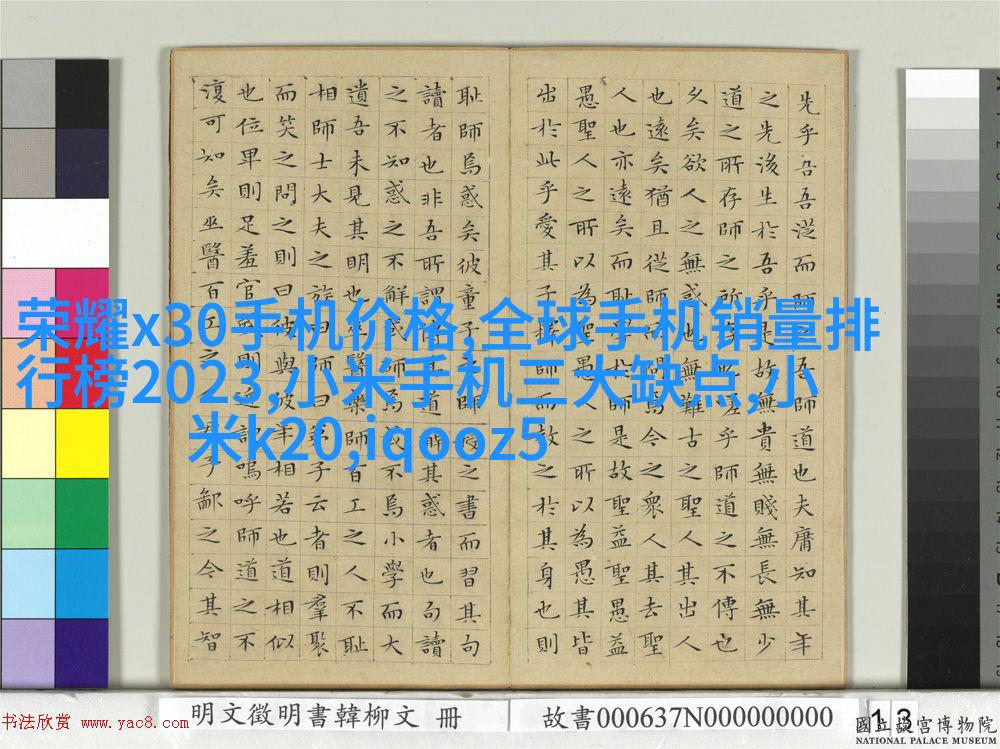 荣耀x30手机价格,全球手机销量排
行榜2023,小米手机三大缺点,小
米k20,iqooz5
先乎吾吾從而師之吾師道也夫庸知其年
之先後生於吾乎是故無貴無賤無長無少
道之所存師之所存也嗟乎師道之不傳也
久矣欲人之無惑也無難古之聖人其出人
也遠矣猶且從師而問焉今之衆人其去聖
人也亦遠矣而恥學於師是故聖益聖愚益
愚聖人之所以為聖愚人之所以為愚其皆
出於此乎愛其子擇師而教之於其身也則
恥師焉惑矣彼童子之師授之書而習其句
讀者也非吾所謂傳其道解其惑者也句讀
之不知惑之不解或師焉或不焉小學而大
遺吾未見其明也巫醫樂師百工之人不恥
相師士大夫之族曰師曰弟子云者則羣聚
而笑之問之則曰彼與彼年相若也道相似
也位卑則足羞官盛則近諛嗚呼師道之不
復可知矣巫醫百工之人君子鄙之今其智
明文徵明書韓柳文 冊
故書000637N000000000
13
书法欣赏 www.yac8.com
國立故宮博物院
NATIONAL PALACE MUSEUM